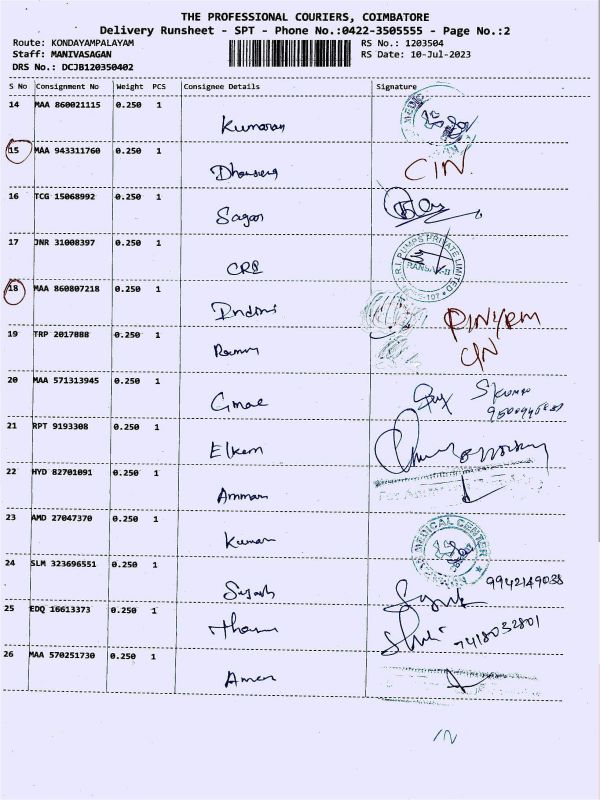 THE PROFESSIONAL COURIERS, COIMBATORE
Delivery Runsheet - SPT - Phone No.:0422-3505555 - Page No.:2
Route: KONDAYAMPALAYAM RS No.: 1203504
Staff: MANIVASAGAN RS Date: 10-Jul-2023
DRS No.: DCJB120350402
S No Consignment No Weight PCS Consignee Details Signature
14 MAA 860021115 0.250 1
Kumaran
15 MAA 943311760 0.250 1
CIN.
16 TCG 15068992 0.250 1
Sagar
17 JNR 31008397 0.250 1
CRI
PUMPS PRIVATE LIMITED
18 MAA 860807218 0.250 1
19 TRP 2017088 0.250 1
CIN
20 MAA 571313945 0.250 1
21 RPT 9193308 0.250 1
Elkem
22 HYD 82701091 0.250 1
Amman
23 AMD 27047370 0.250 1
Kumar
MEDICAL CENTER
24 SLM 323696551 0.250 1
9942149038
25 EDQ 16613373 0.250 1
7418032801
26 MAA 570251730 0.250 1